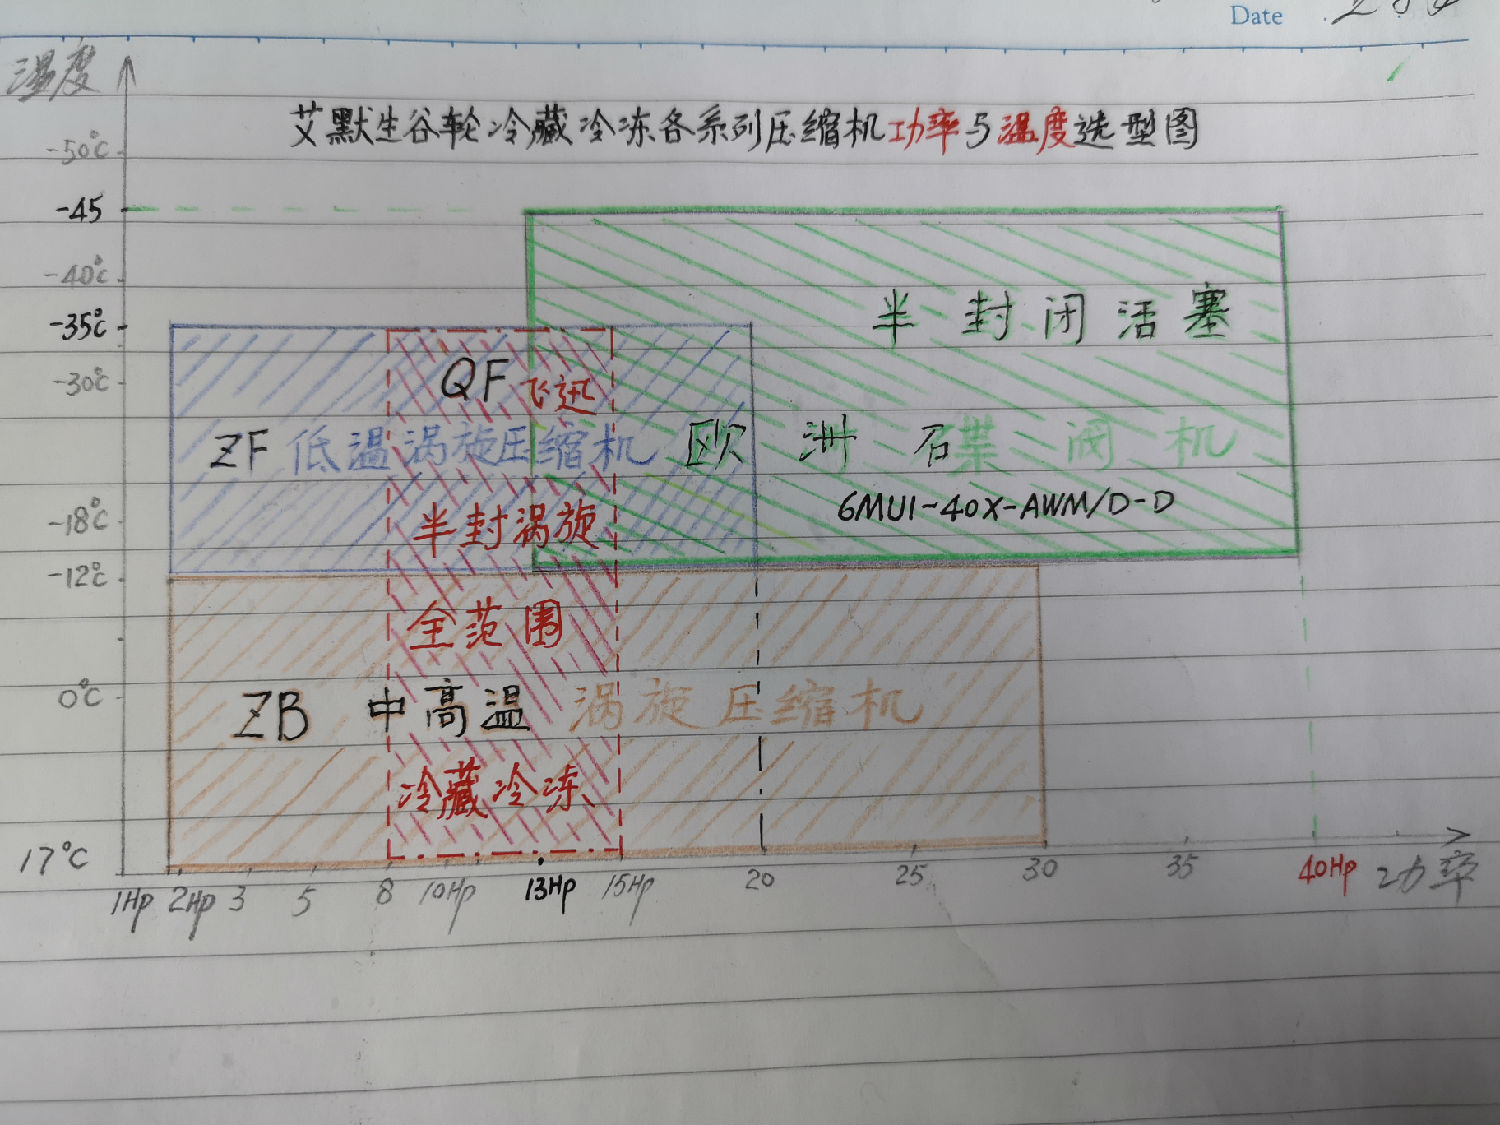 Date
温度
艾默生谷轮冷藏冷冻各系列压缩机功率与温度选型图
-50℃
-45
-40℃
半封闭活塞
-35℃
QF飞迅
-30℃
ZF 低温涡旋压缩机 欧洲石棐阀机
6MU1-40X-AWM/D-D
半封涡旋
-18℃
-12℃
全范围
0℃
ZB 中高温涡旋压缩机
冷藏冷冻
17℃
1Hp 2Hp 3 5 8 10Hp 13Hp 15Hp 20 25 30 35 40Hp 功率